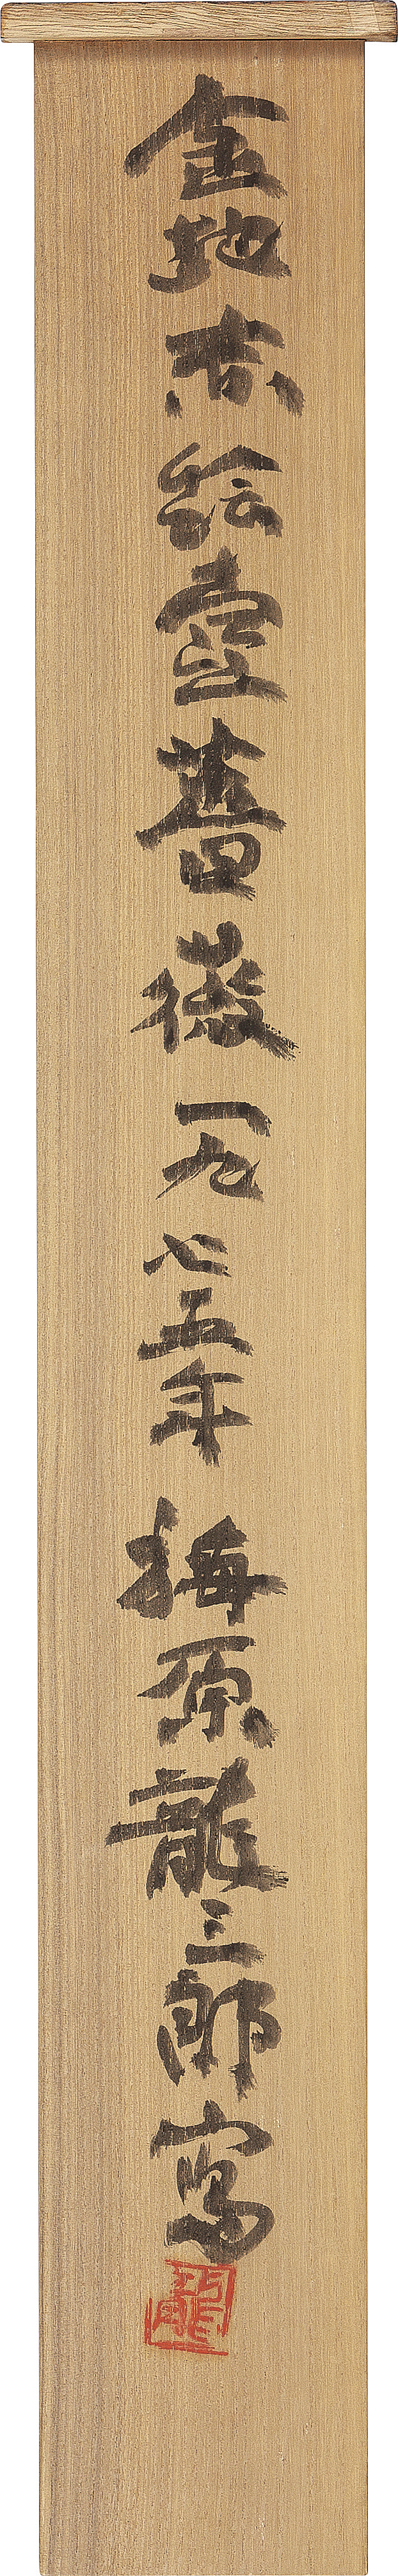 金地赤絵壷薔薇一九七五年 梅原龍三郎寫
龍